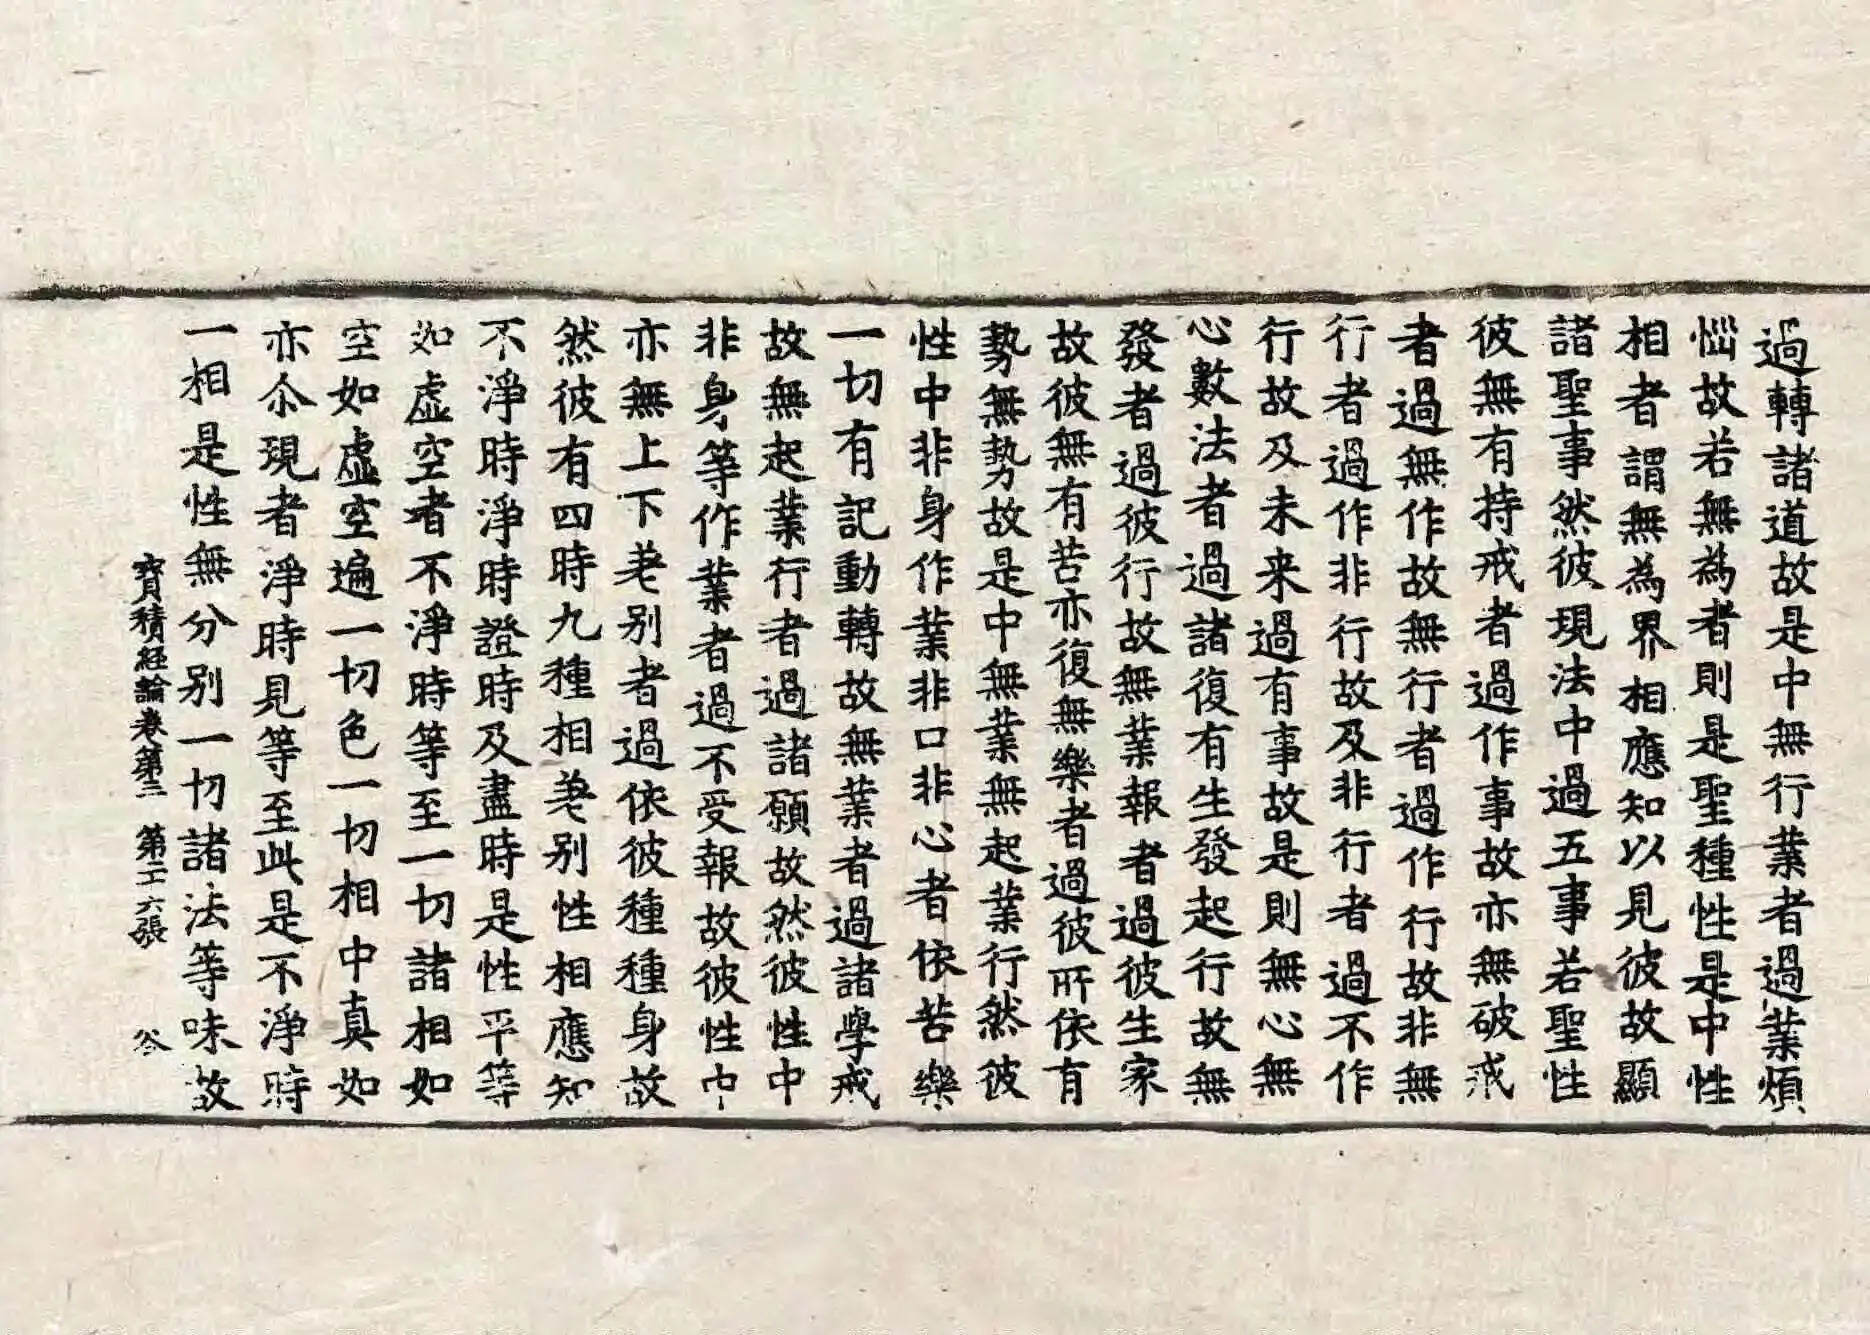 過轉諸道故是中無行業者過業煩
惱故若無為者則是聖種性是中性
相者謂無為界相應知以見彼故顯
諸聖事然彼現法中過五事若聖性
彼無有持戒者過作事故亦無破戒
者過無作故無行者過作行故非無
行者過作非行故及非行者過不作
行故及未来過有事故是則無心無
心數法者過諸復有生發起行故無
發者過彼行故無業報者過彼生家
故彼無有苦亦復無樂者過彼所依有
勢無勢故是中無業無起業行然彼
性中非身作業非口非心者依苦樂
一切有記動轉故無業者過諸學戒
故無起業行者過諸願故然彼性中
非身等作業者過不受報故彼性中
亦無上下差别者過依彼種種身故
然彼有四時九種相差别性相應知
不淨時淨時證時及盡時是性平等
如虚空者不淨時等至一切諸相如
空如虚空遍一切色一切相中真如
亦尒現者淨時見等至此是不淨時
一相是性無分别一切諸法等味故
寳積經論卷第三 第二六張